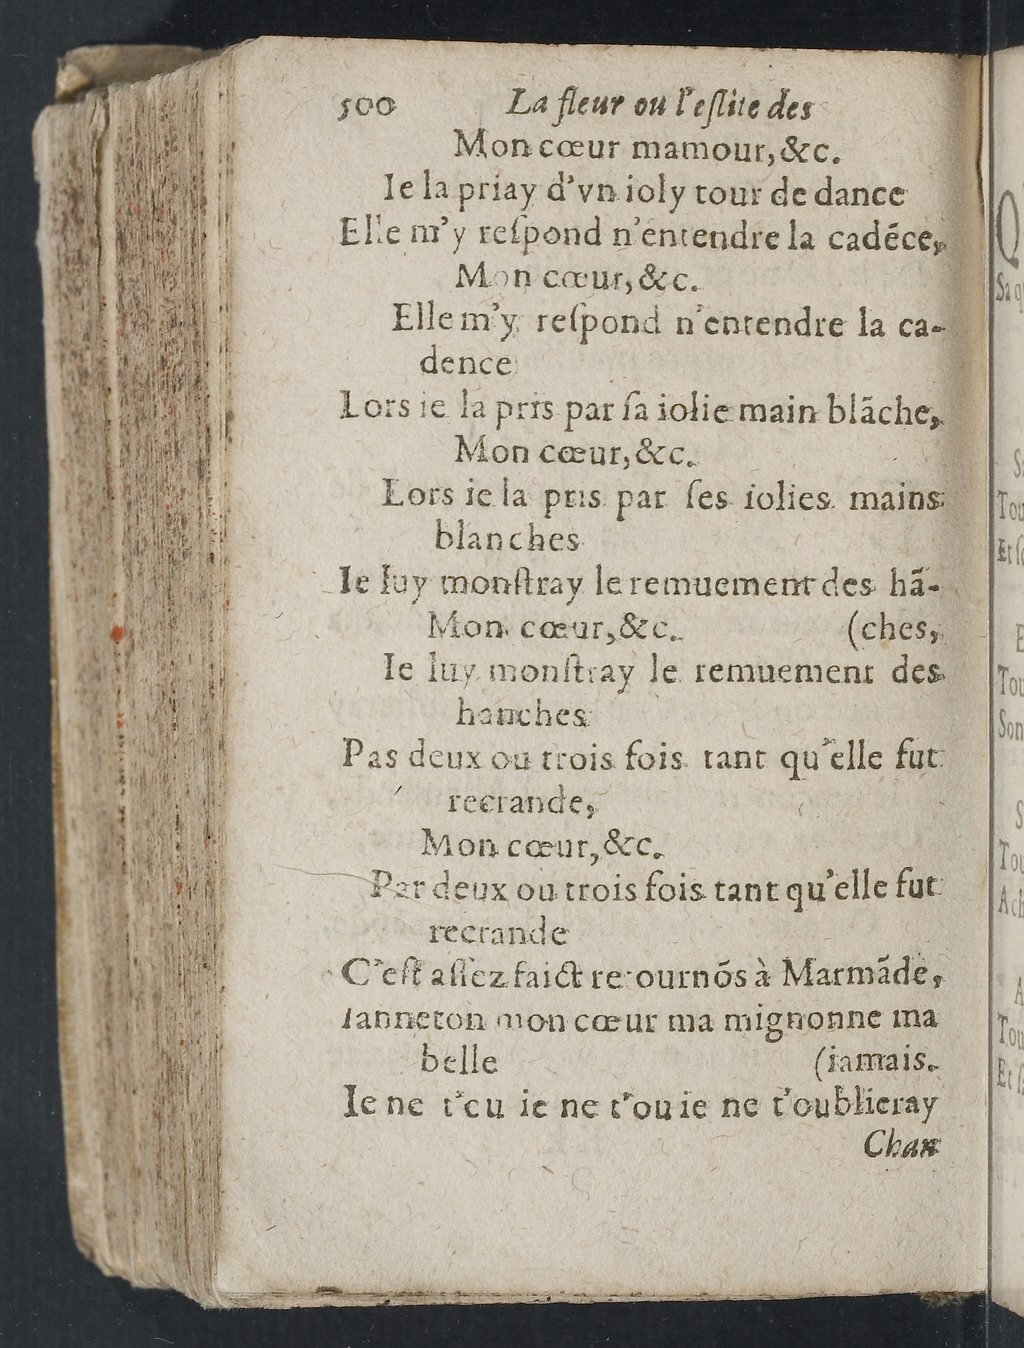 500 La fleur ou l'eſlite des
Mon cœur mamour, &c.
Ie la priay d'vn ioly tour de dance
Elle m'y reſpond n'entendre la cadẽce,
Mon cœur, &c.
Elle m'y reſpond n'entendre la ca-
dence
Lors ie la pris par ſa iolie main blãche,
Mon cœur, &c.
Lors ie la pris par ſes iolies mains
blanches
Ie luy monſtray le remuement des hã-
Mon cœur, &c. (ches,
Ie luy monſtray le remuement des
hanches
Pas deux ou trois fois tant qu'elle fut
recrande,
Mon cœur, &c.
Par deux ou trois fois tant qu'elle fut
recrande
C'eſt aſſez faict retournõs à Marmãde,
Ianneton mon cœur ma mignonne ma
belle (iamais.
Ie ne t'ou ie ne t'ou ie ne t'oublieray
Chan